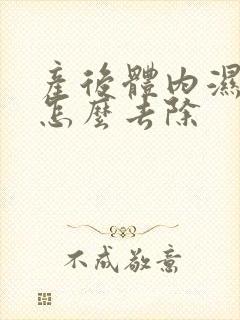 產後體內濕
怎麼去除
不成敬意